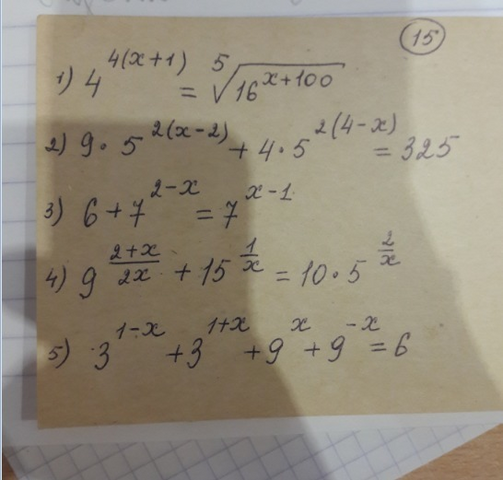 15
1) 4^{4(x+1)} = \sqrt[5]{16^{x+100}}
2) 9 · 5^{2(x-2)} + 4 · 5^{2(4-x)} = 325
3) 6 + 7^{2-x} = 7^{x-1}
4) 9^{\frac{2+x}{2x}} + 15^{\frac{1}{x}} = 10 · 5^{\frac{2}{x}}
5) 3^{1-x} + 3^{1+x} + 9^{x} + 9^{-x} = 6